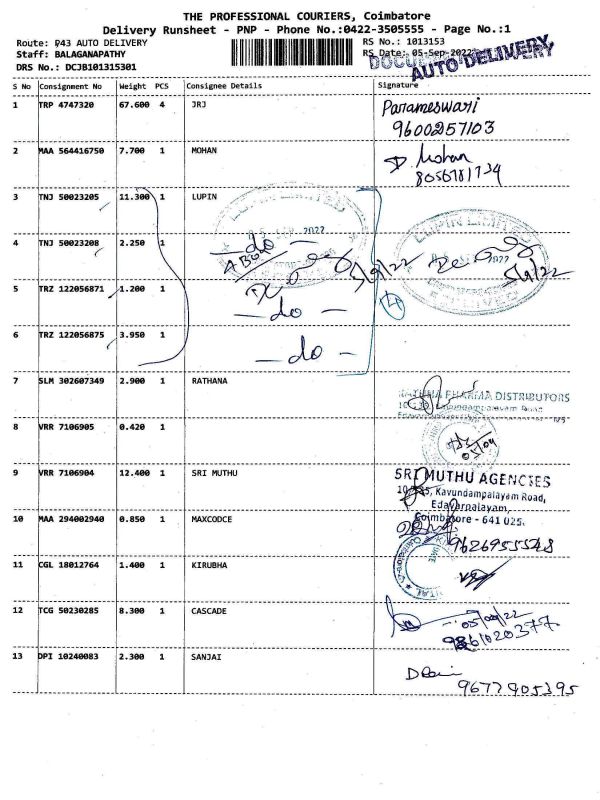 THE PROFESSIONAL COURIERS, Coimbatore
Delivery Runsheet - PNP - Phone No.:0422-3505555 - Page No.:1
Route: P43 AUTO DELIVERY
RS No.: 1013153
Staff: BALAGANAPATHY
RS Date: 05-Sep-2022
DRS No.: DCJB101315301
AUTO DELIVERY
S No Consignment No Weight PCS Consignee Details Signature
1 TRP 4747320 67.600 4 JRJ
Parameswari
9600257103
2 MAA 564416750 7.700 1 MOHAN
D. Mohan
8056781734
3 TNJ 50023205 11.300 1 LUPIN
LUPIN LIMITED
SEP 2022
do
4 TNJ 50023208 2.250 1
5/9/22
LUPIN LIMITED
2022
5/9/22
RECEIVED
5 TRZ 122056871 1.200 1
do
4
6 TRZ 122056875 3.950 1
do
7 SLM 302607349 2.900 1 RATHANA
PHARMA DISTRIBUTORS
8 VRR 7106905 0.420 1
05/09
9 VRR 7106904 12.400 1 SRI MUTHU
SRI MUTHU AGENCIES
Kavundampalayam Road,
Edayarpalayam,
Coimbatore - 641 025.
10 MAA 294002940 0.850 1 MAXCODCE
9626955548
11 CGL 18012764 1.400 1 KIRUBHA
12 TCG 50230285 8.300 1 CASCADE
05/09/22
13 DPI 10240083 2.300 1 SANJAI
9677905395